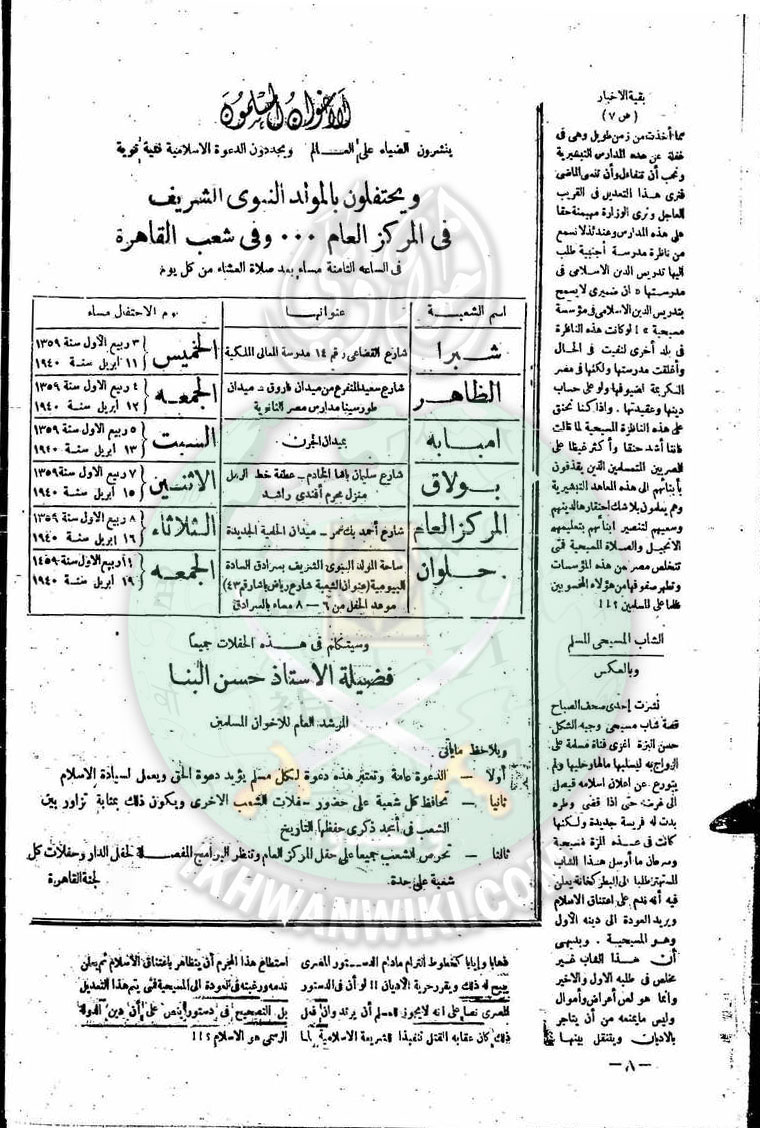 بقية الاخبار
( ص ٧ )
مما أخذت من زمن طويل وهى فى
غفلة عن هذه المدارس التبشيرية
ونحب أن نتفاءل وأن ننسى الماضى
فنرى هذا التعديل فى القريب
العاجل ونرى الوزارة مهيمنة حقا
على هذه المدارس وعندئذ لا نسمع
من ناظرة مدرسة أجنبية طلب
اليها تدريس الدين الاسلامى فى
مدرستها « ان ضميرى لا يسمح
بتدريس الدين الاسلامى فى مؤسسة
مسيحية » لو كانت هذه الناظرة
فى بلد أخرى لنفيت فى الحال
وأغلقت مدرستها ولكنها فى مصر
الكريمة لضيوفها ولو على حساب
دينها وعقيدتها . واذا كنا نحنق
على هذه الناظرة المسيحية لما قالت
فاننا أشد حنقا وأكثر غيظا على
المصريين المتمسلمين الذين يقذفون
بأبنائهم الى هذه المعاهد التبشيرية
وهم يعلمون بلا شك احتقارها لدينهم
وسعيهم لتنصير ابنائهم بتعليمهم
الانجيل والصلاة المسيحية فتى
تتخلص مصر من هذه المؤسسات
وتطهر صفوفها من هؤلاء المحسوبين
ظلما على المسلمين ؟!!
الشاب المسيحى المسلم
وبالعكس
نشرت إحدى صحف الصباح
قصة شاب مسيحى وجيه الشكل
حسن البزة اغرى فتاة مسلمة على
الزواج به ليسلبها مالها وحليها ولم
يتورع عن اعلان اسلامه ليصل
الى غرضه حتى اذا قضى وطره
بدت له فريسة جديدة ولكنها
كانت فى هذه المرة مسيحية
وسرعان ما أرسل هذا الشاب
المستهتر طلبا الى البطركخانة يعلن
فيه أنه ندم على اعتناق الاسلام
ويريد العودة الى دينه الأول
وهو المسيحية . وبديهى
أن هذا الشاب غير
مخلص فى طلبه الاول والاخير
وانما هو لص أعراض وأموال
وليس ما يمنعه من أن يتاجر
بالاديان ويتنقل بينها
الاخوان المسلمون
ينشرون الضياء على العالم ويجددون الدعوة الاسلامية فتية قوية
ويحتفلون بالمولد النبوى الشريف
فى المركز العام ... وفى شعب القاهرة
فى الساعة الثامنة مساء بعد صلاة العشاء من كل يوم
اسم الشعبة | عنوانها | يوم الاحتفال مساء
شبرا | شارع القضاعى رقم ١٤ مدرسة المعالى الملكية | الخميس { ٣ ربيع الأول سنة ١٣٥٩ ١١ ابريل سنة ١٩٤٠
الظاهر | شارع سعيد المتفرع من ميدان فاروق - ميدان طورسينا مدارس مصر الثانوية | الجمعه { ٤ ربيع الأول سنة ١٣٥٩ ١٢ ابريل سنة ١٩٤٠
امبابه | بميدان الجرن | السبت { ٥ ربيع الأول سنة ١٣٥٩ ١٣ ابريل سنة ١٩٤٠
بولاق | شارع سليمان باشا الخادم - عطفة خط الرمل منزل محرم أفندى راشد | الاثنين { ٧ ربيع الأول سنة ١٣٥٩ ١٥ ابريل سنة ١٩٤٠
المركز العام | شارع أحمد بك عمر - ميدان الحلمية الجديدة | الثلاثاء { ٨ ربيع الأول سنة ١٣٥٩ ١٦ ابريل سنة ١٩٤٠
حلوان | ساحة المولد النبوى الشريف بسرادق السادة البيومية (عنوان الشعبة شارع رياض باشا رقم ٤٣) موعد الحفل من ٦ — ٨ مساء بالسرادق | الجمعه { ١١ ربيع الأول سنة ١٣٥٩ ١٩ ابريل سنة ١٩٤٠
وسيتكلم فى هذه الحفلات جميعا
فضيلة الاستاذ حسن البنا
المرشد العام للاخوان المسلمين
ويلاحظ مايأتى
أولا — الدعوة عامة وتعتبر هذه دعوة لكل مسلم يؤيد دعوة الحق ويعمل لسيادة الاسلام
ثانيا — تحافظ كل شعبة على حضور حفلات الشعب الاخرى ويكون ذلك بمثابة تزاور بين
الشعب فى أمجد ذكرى حفظها التاريخ
ثالثا — تحرص الشعب جميعا على حفل المركز العام وتنظر البرامج المفصلة لحفل الدار وحفلات كل
شعبة على حدة. لجنة القاهرة
IKHWANWIKI.COM
فهابا وإيابا كخطوط الترام مادام الدستور المصرى
يبيح له ذلك ويقرر حرية الاديان !! لو أن فى الدستور
المصرى نصا على انه لايجوز للمسلم أن يرتد وان فعل
ذلك كان عقابه القتل تنفيذا للشريعة الاسلامية لما
استطاع هذا المجرم أن يتظاهر باعتناق الاسلام ثم يعلن
ندمه ورغبته فى العودة الى المسيحية فتى يتم هذا التعديل
بل التصحيح فى دستور ينص على أن دين الدولة
الرسمى هو الاسلام ؟!!
— ٨ —